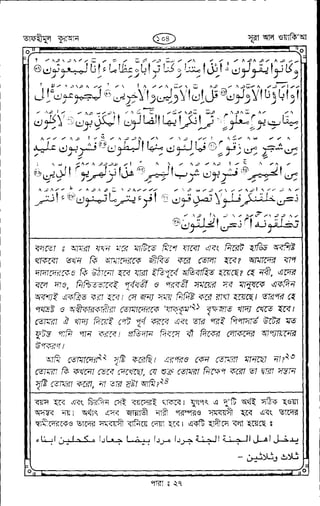 তাফহীমুল কুরআন
১০৪
সূরা আল ওয়াকি'আ
وَكَانُوا يَقُولُونَ أَئِذَا مِتْنَا وَكُنَّا تُرَابًا وَعِظَامًا ءَإِنَّا لَمَبْعُوثُونَ
أَوَآبَاؤُنَا الْأَوَّلُونَ قُلْ إِنَّ الْأَوَّلِينَ وَالْآخِرِينَ لَمَجْمُوعُونَ إِلَى
مِيقَاتِ يَوْمٍ مَعْلُومٍ ثُمَّ إِنَّكُمْ أَيُّهَا الضَّالُّونَ الْمُكَذِّبُونَ لَآكِلُونَ
مِنْ شَجَرٍ مِنْ زَقُّومٍ فَمَالِئُونَ مِنْهَا الْبُطُونَ فَشَارِبُونَ عَلَيْهِ
مِنَ الْحَمِيمِ فَشَارِبُونَ شُرْبَ الْهِيمِ هَذَا نُزُلُهُمْ يَوْمَ الدِّينِ
نَحْنُ خَلَقْنَاكُمْ فَلَوْلَا تُصَدِّقُونَ أَفَرَأَيْتُمْ مَا تُمْنُونَ ءَأَنْتُمْ
تَخْلُقُونَهُ أَمْ نَحْنُ الْخَالِقُونَ
বলতো ঃ আমরা যখন মরে মাটিতে মিশে যাবো এবং নিরেট হাড্ডি অবশিষ্ট
থাকবো তখন কি আমাদেরকে জীবিত করে তোলা হবে? আমাদের বাপ
দাদাদেরকেও কি উঠানো হবে যারা ইতিপূর্বে অতিবাহিত হয়েছে? হে নবী, এদের
বলে দাও, নিশ্চিতভাবেই পূর্ববর্তী ও পরবর্তী সময়ের সব মানুষকে একদিন
অবশ্যই একত্রিত করা হবে। সে জন্য সময় নির্দিষ্ট করে রাখা হয়েছে। তারপর হে
পথভ্রষ্ট ও অস্বীকারকারীরা তোমাদেরকে 'যাক্কুম' বৃক্ষজাত খাদ্য খেতে হবে।
তোমরা ঐ খাদ্য দিয়েই পেট পূর্ণ করবে এবং তার পরই পিপাসার্ত উটের মত
ফুটন্ত পানি পান করবে। প্রতিদান দিবসে বাঁ দিকের লোকদের আপ্যায়নের
উপকরণ।
আমি তোমাদের২২ সৃষ্টি করেছি। এরপরও কেন তোমরা মানছো না?২৩
তোমরা কি কখনো ভেবে দেখেছো, যে শুক্র তোমরা নিক্ষেপ করো তা দ্বারা সন্তান
সৃষ্টি তোমরা করো, না তার স্রষ্টা আমি?২৪
يدخل اهل الجنة الجنة جردا مردا بيضا جعادا مكحلين ابناء
ثلاث وثلاثين -
পারা ঃ ২৭